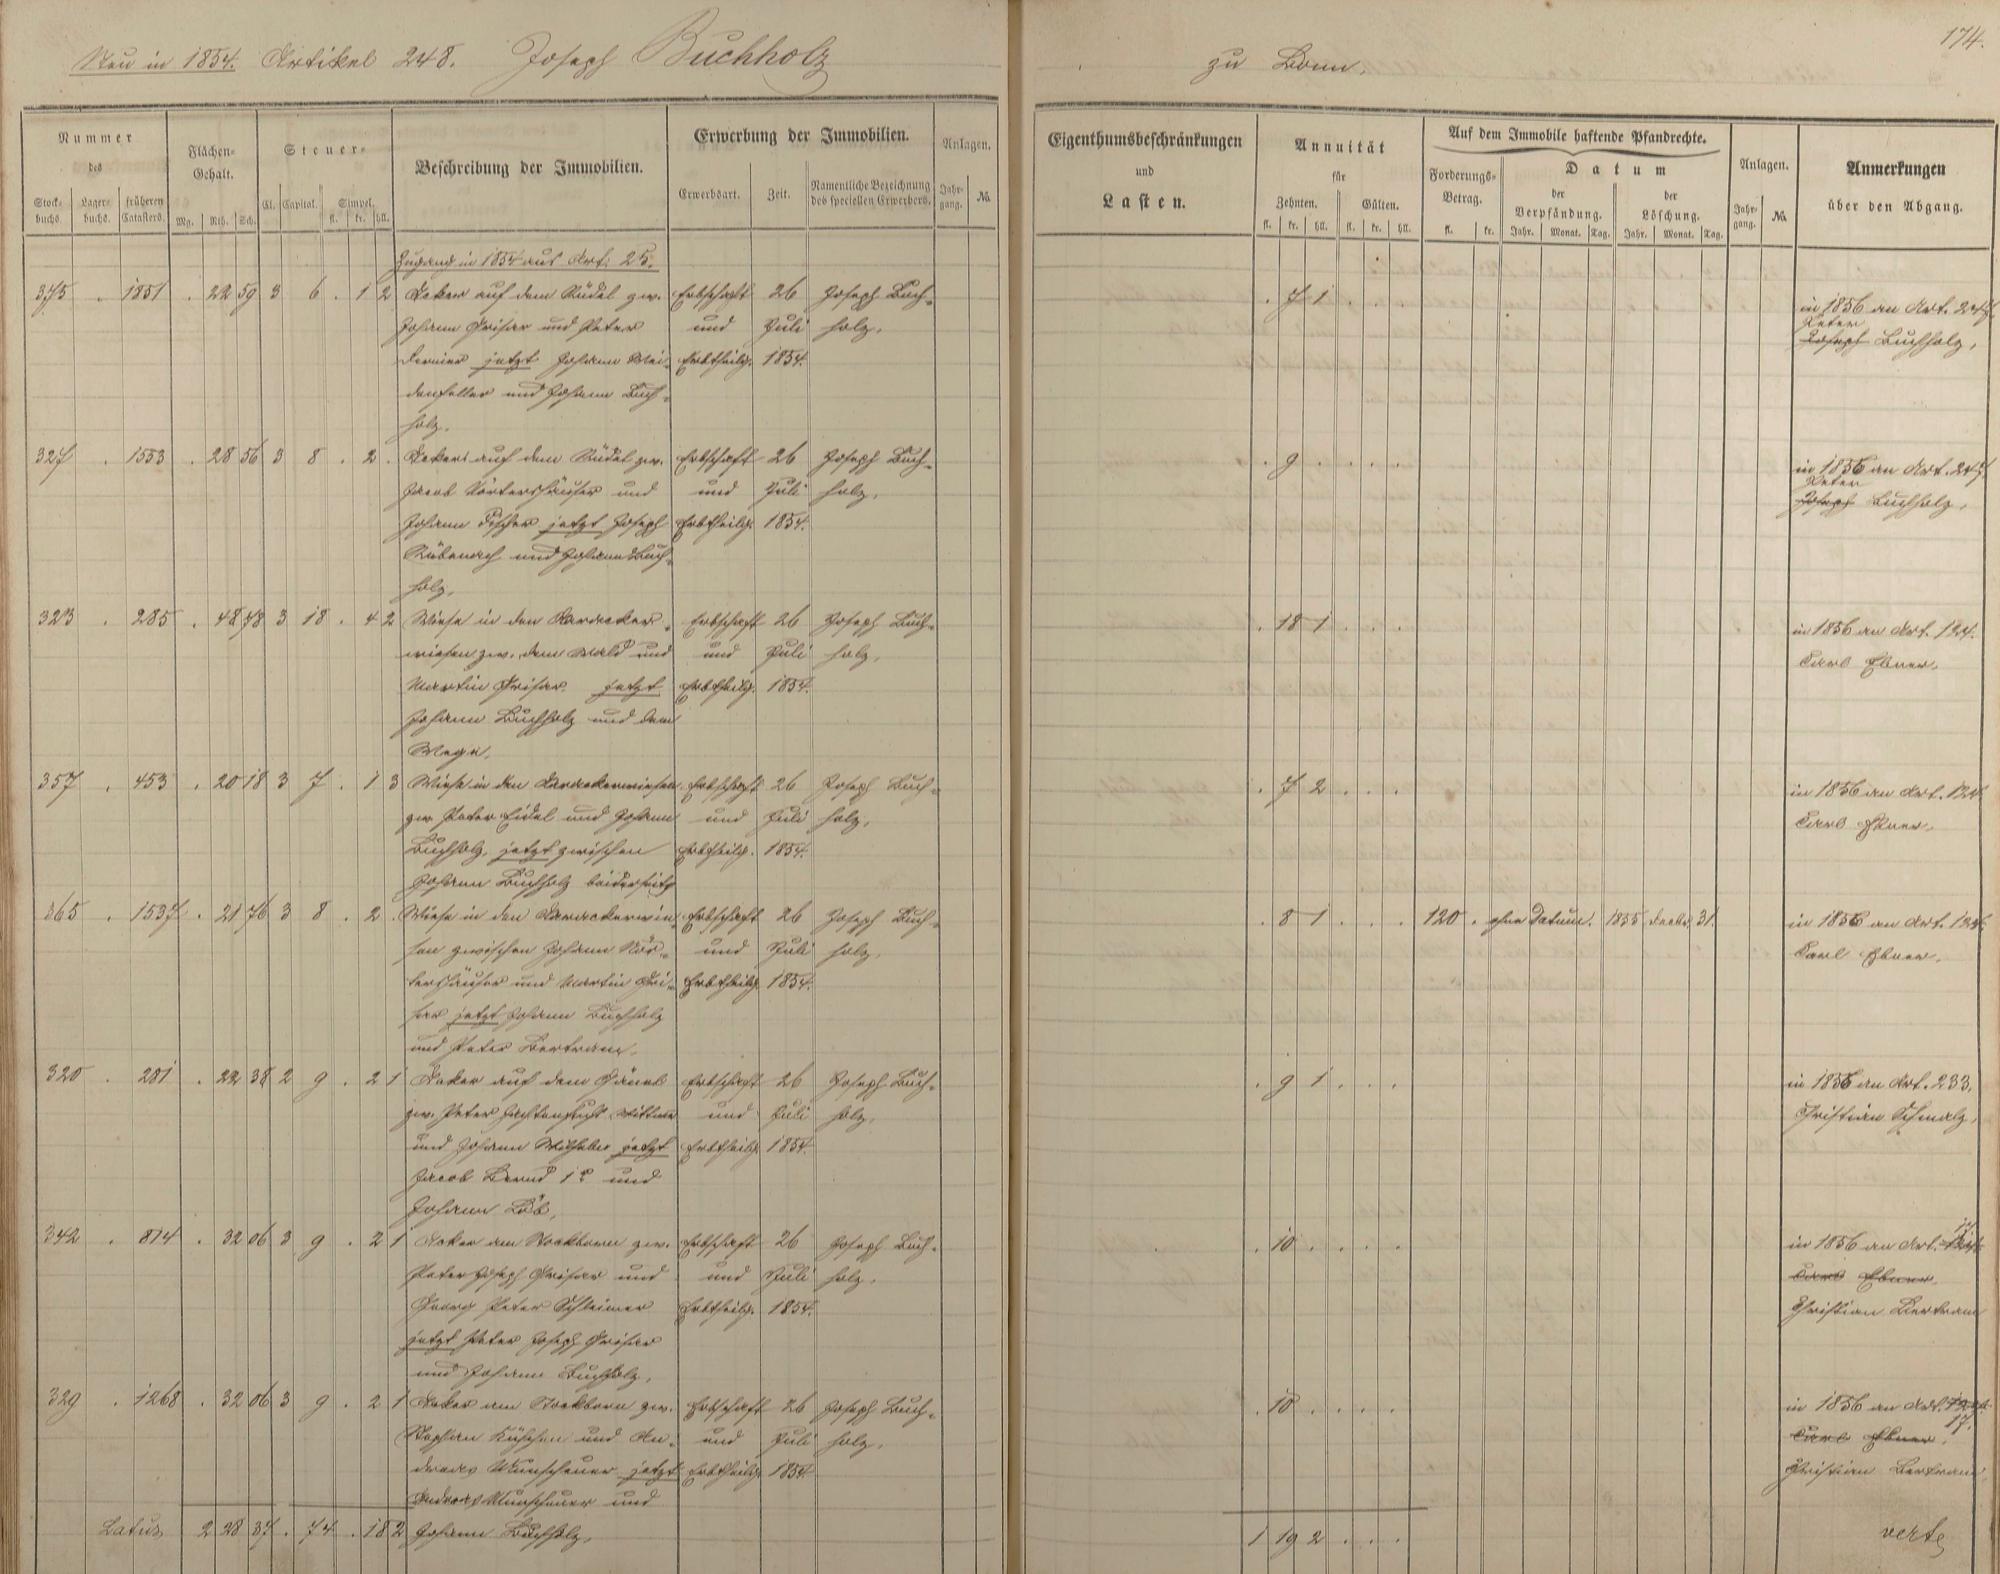 Neu in 1854. Artikel 248. Joseph Buchholz
zu Bonn.
174.
Nummer
des
Stock-
buchs.
Lager-
buchs.
früheren
Catasters.
Flächen-
Gehalt.
Mg. Rth. Sch.
Steuer-
Cl. Capital. Simpel.
fl. kr. hll.
Beschreibung der Immobilien.
Erwerbung der Immobilien.
Erwerbsart. Zeit. Namentliche Bezeichnung
des speciellen Erwerbers.
Anlagen.
Jahr-
gang. No.
Eigenthumsbeschränkungen
und
Lasten.
Annuität
für
Zehnten. Gülten.
fl. kr. hll. fl. kr. hll.
Auf dem Immobile haftende Pfandrechte.
Forderungs-
Betrag.
fl. kr.
Datum
der
Verpfändung.
der
Löschung.
Jahr. Monat. Tag. Jahr. Monat. Tag.
Anlagen.
Jahr-
gang. No.
Anmerkungen
über den Abgang.
Zugang in 1854 aus Art. 25.
375 . 1851 . 22 59 3 6 . 1 2 Acker auf dem Rüdel zw. Erbschaft 26 Joseph Buch- . 7 1 . . . in 1856 an Art. 247.
Johann Grisar und Peter und Juli holz. Peter
jetzt Johann Wei- Erbtheilg. 1854. Joseph Buchholz.
denfeller und Johann Buch-
holz.
327 . 1553 . 28 56 3 8 . 2 . Acker auf dem Rüdel zw. Erbschaft 26 Joseph Buch- . 9 . . . . in 1856 an Art. 247.
Jacob Nörtershäuser und und Juli holz. Peter
Johann Fischer jetzt Joseph Erbtheilg. 1854. Joseph Buchholz.
Rübenach und Johann Buch-
holz.
323 . 285 . 48 78 3 18 . 4 2 Wiese in den Aarecker- Erbschaft 26 Joseph Buch- . 18 1 . . . in 1856 an Art. 124.
wiesen zw. dem Wald und und Juli holz. Carl Ebner.
Martin Grisar jetzt Erbtheilg. 1854.
Johann Buchholz und dem
Wege.
357 . 453 . 20 18 3 7 . 1 3 Wiese in den Erbschaft 26 Joseph Buch- . 7 2 . . . in 1856 an Art. 124
zw. Peter Eidel und Johann und Juli holz. Carl Ebner.
Buchholz, jetzt zwischen Erbtheilg. 1854.
Johann Buchholz beiderseits
365 . 1537 . 21 76 3 8 . 2 . Wiese in den Erbschaft 26 Joseph Buch- . 8 1 . . . 120 . ohne Datum. 1855 Decbr. 31. in 1856 an Art. 124.
sen zwischen Johann Nör- und Juli holz. Carl Ebner.
tershäuser und Martin Gri- Erbtheilg. 1854.
sar jetzt Johann Buchholz
und Peter Bertram.
320 . 281 . 22 38 2 9 . 2 1 Acker auf dem Erbschaft 26 Joseph Buch- . 9 1 . . . in 1856 an Art. 233.
zw. Peter Wittwe und Juli holz. Christian Schmalz.
und Johann jetzt Erbtheilg. 1854.
Jacob Bernd 1r und
Johann Löb.
342 . 814 . 32 06 3 9 . 2 1 Acker am Stockborn zw. Erbschaft 26 Joseph Buch- . 10 . . . . in 1856 an Art. 124 17.
Peter Joseph Grisar und und Juli holz. Carl Ebner.
Georg Peter Schleimer Erbtheilg. 1854. Christian Bertram
jetzt Peter Joseph Grisar
und Johann Buchholz.
329 . 1268 . 32 06 3 9 . 2 1 Acker am Stockborn zw. Erbschaft 26 Joseph Buch- . 10 . . . . in 1856 an Art. 124. 17.
Stephan und An- und Juli holz. Carl Ebner.
dreas Wunscheuer jetzt Erbtheilg. 1854 Christian Bertram
Andreas Wunscheuer und
Latus 2 28 37 . 74 . 18 2 Johann Buchholz. 1 19 2 . . . verte